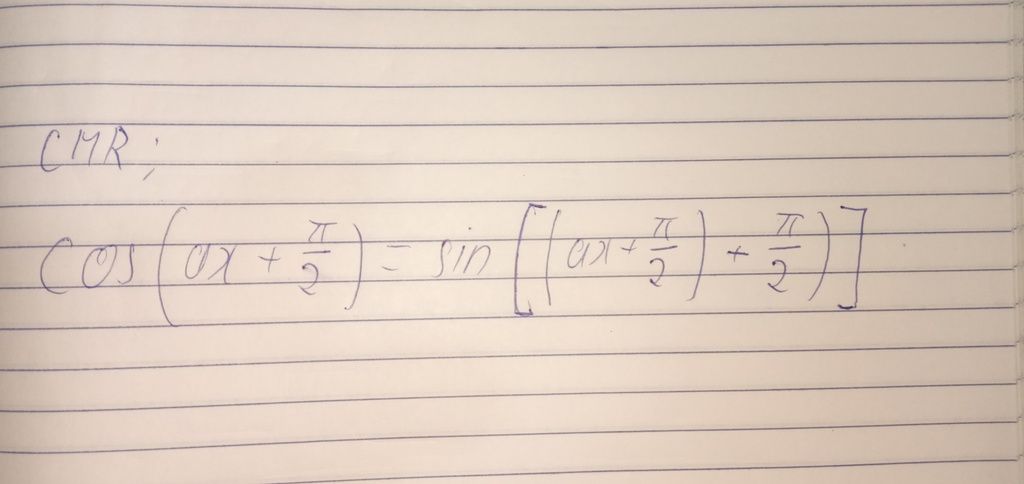 CMR;
Cos(ax + π/2) = sin[(ax + π/2) + π/2)]